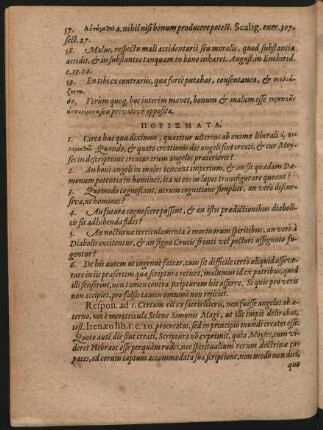 57. nihil nisi bonum producere potest. Scalig. exer. 307.
sect. 27.
58. Malus, respectu mali accidentarii seu moralis, quod substantiæ
accidit, & in substantia tanquam in bono inhæret. August. in Enchirid.
c. 13. 14.
59. Enti bi ex contrariis, quæ forte putabas, consentanea, &
60. Verum quog, hoc interim manet, bonum & malum esse
seu privative opposita.
ΠΟΡΙΣΜΑΤΑ.
1. Circa hæc quæ diximus, quæritur ulterius ab animo liberali
Quando, & quoto creationis die angeli sint creati, & cur Moy-
ses in descriptione creaturarum angelos præterierit?
2. An boni angeli in males teneant imperium, & an sit quædam Dæ-
manum potentia in homines, ita ut eos in lupos transfigurare queant?
3. Quomodo cognoscant, utrum cognitione simplici, an verò discur-
siva, ut homines?
4. An futura cognoscere possint, & an istis prædictionibus diaboli-
cis sit adhibenda fides?
5. An nocturna terriculamenta à mortuorum spiritibus, an verò à
Diabolis excitentur, & an signo Crucis fronti vel pectori assignato fu-
gentur?
6. De his autem ut ingenuè fatear, cum sit difficile certò aliquid asseve-
rare in iis præsertim quæ scriptura reticet, multùm id ex patribus, quod
illi asserent, neu tamen contra scripturam hic asseram. Si quis pro veris
non accipiet, pro falsis tamen omnino non rejiciet.
Respon. ad 1. Certum est ex scriptoribus, non fuisse angelos ab æ-
terno, nec à meretricula Selene Simonis Magi, ut ille impiè delirabat,
test. Irenæo lib. 1. c. 20. procreatos, sed in principio mundi creatos esse.
Quoto autè die sint creati, Scriptura nō exprimit, quia Moyses, cum vi-
deret Hebræos esse perquàm rudes, nec spiritualium rerum doctrinæ ca-
paces, ad eorum captum accommodata sua scriptione, non modò non diei,
quo